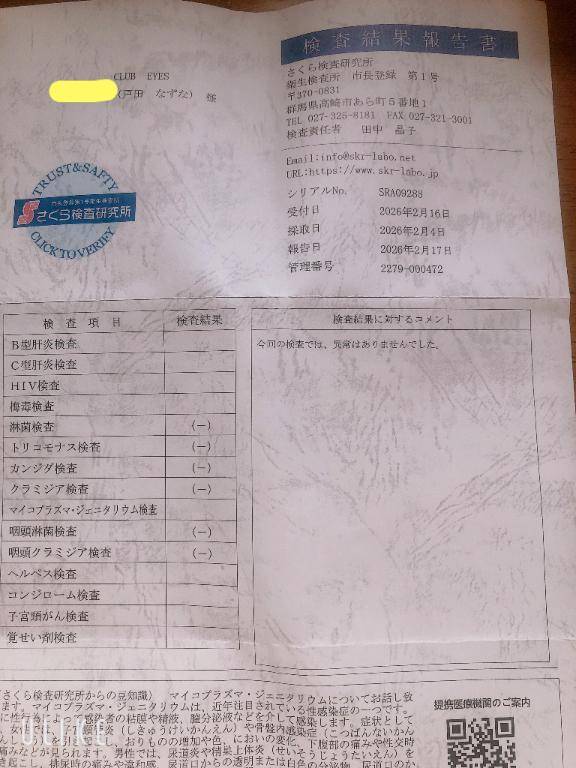 検査結果報告書
さくら検査研究所
衛生検査所 市長登録 第1号
〒370-0831
群馬県高崎市あら町5番地1
TEL 027-325-8181 FAX 027-321-3001
検査責任者 田中 晶子
CLUB EYES
(戸田 なずな) 様
Email:info@skr-labo.net
URL:https://www.skr-labo.jp
TRUST&SAFTY
さくら検査研究所
CLICK TO VERIFY
シリアルNo. SRA09288
受付日 2026年2月16日
採取日 2026年2月4日
報告日 2026年2月17日
管理番号 2279-000472
検査項目 検査結果
B型肝炎検査
C型肝炎検査
HIV検査
梅毒検査
淋菌検査 (−)
トリコモナス検査 (−)
カンジダ検査 (−)
クラミジア検査 (−)
マイコプラズマ・ジェニタリウム検査
咽頭淋菌検査 (−)
咽頭クラミジア検査 (−)
ヘルペス検査
コンジローム検査
子宮頸がん検査
覚せい剤検査
検査結果に対するコメント
今回の検査では、異常はありませんでした。
(さくら検査研究所からの豆知識) マイコプラズマ・ジェニタリウムについてお話し致
ます。マイコプラズマ・ジェニタリウムは、近年注目されている性感染症の一つです。
に性行為によって感染者の粘膜や精液、膣分泌液などを介して感染します。症状として
、女性は、頸管炎(しきゅうけいかんえん)や骨盤内感染症(こつばんないかん
おりものの増加や色、においの変化、下腹部の痛みや性交時
痛みなどが見られます。男性では、尿道炎や精巣上体炎(せいそうじょうたいえん)を
き起こし、排尿時の痛みや違和感、尿道口からの透明または白色の分泌物、尿道口のか
提携医療機関のご案内
ULIKE